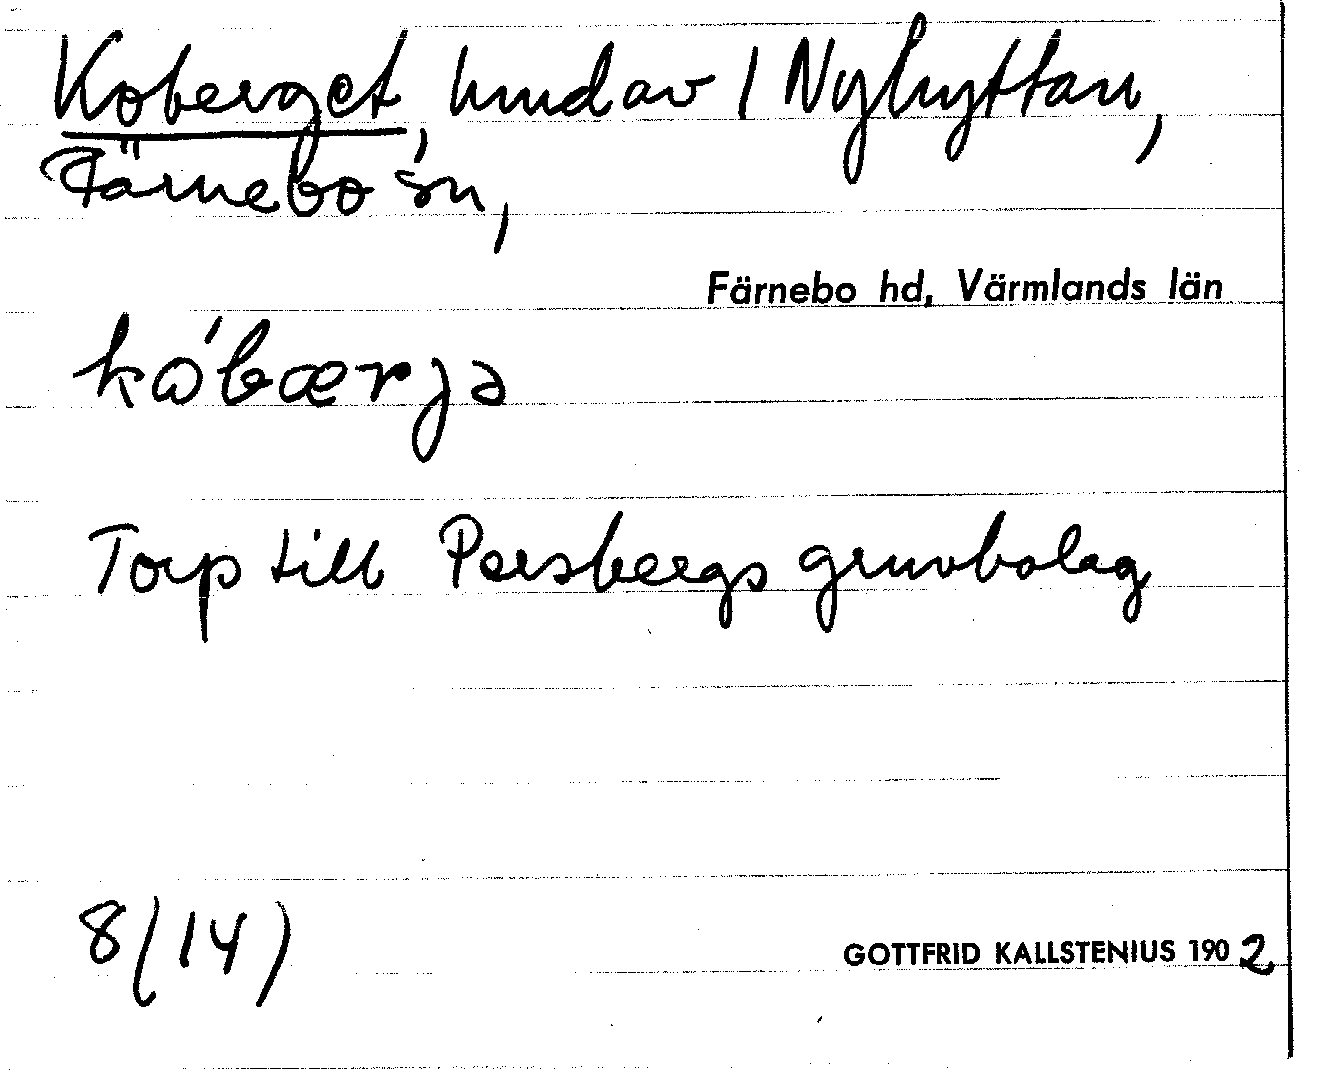 Koberget, hmd av 1 Nyhyttan,
Färnebo sn,
Färnebo hd, Värmlands län
kɷ́bærjə
Torp till Persbergs gruvbolag
8(14)
GOTTFRID KALLSTENIUS 1902